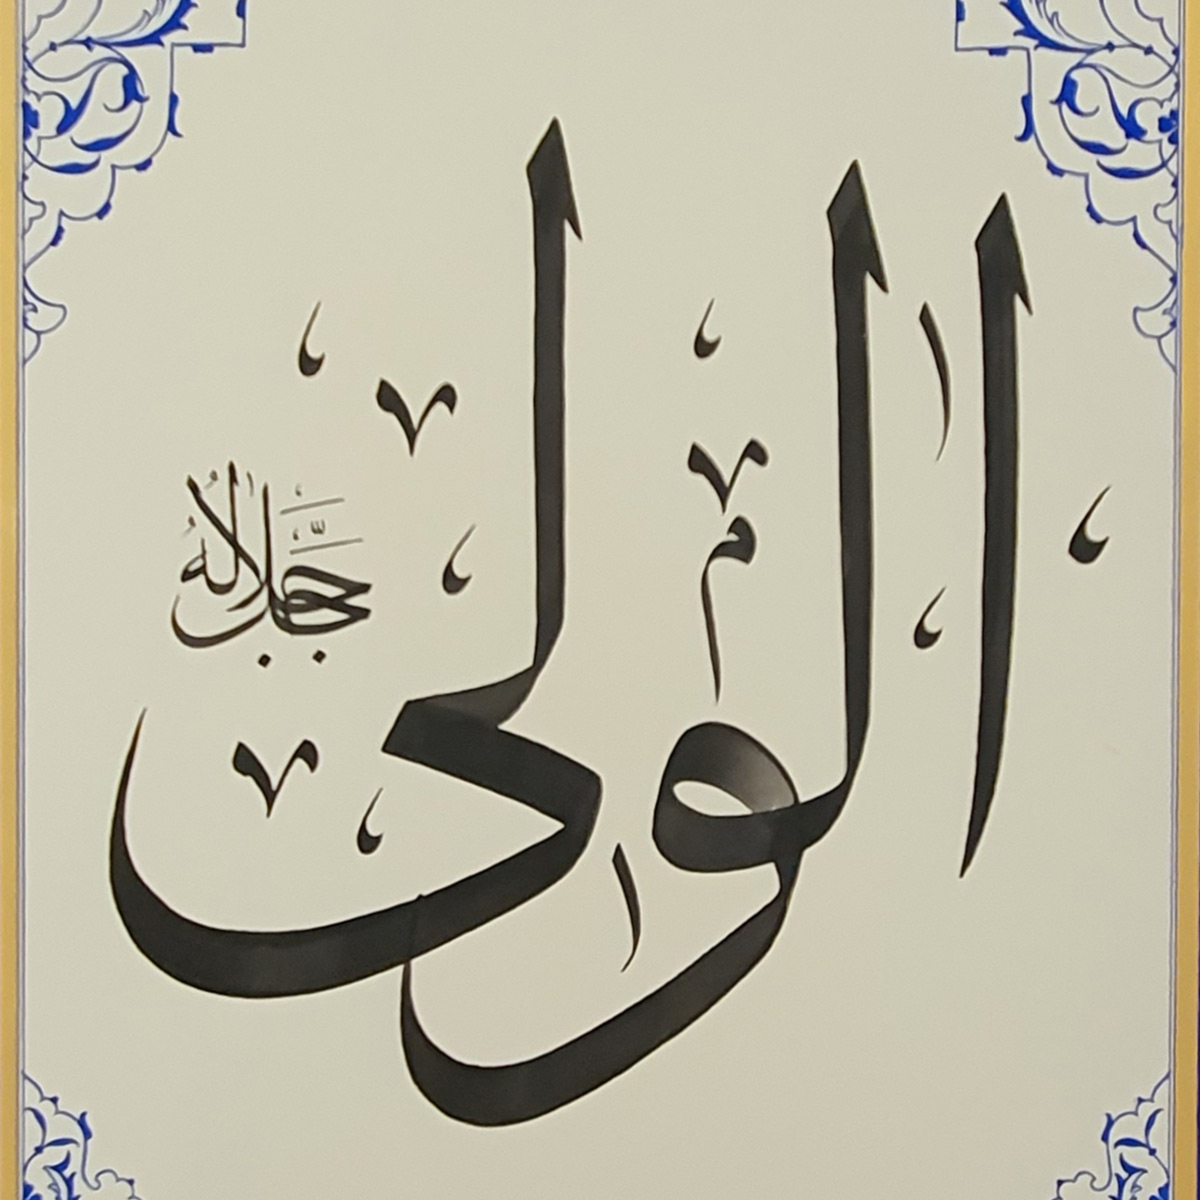 الولى
جل جلاله